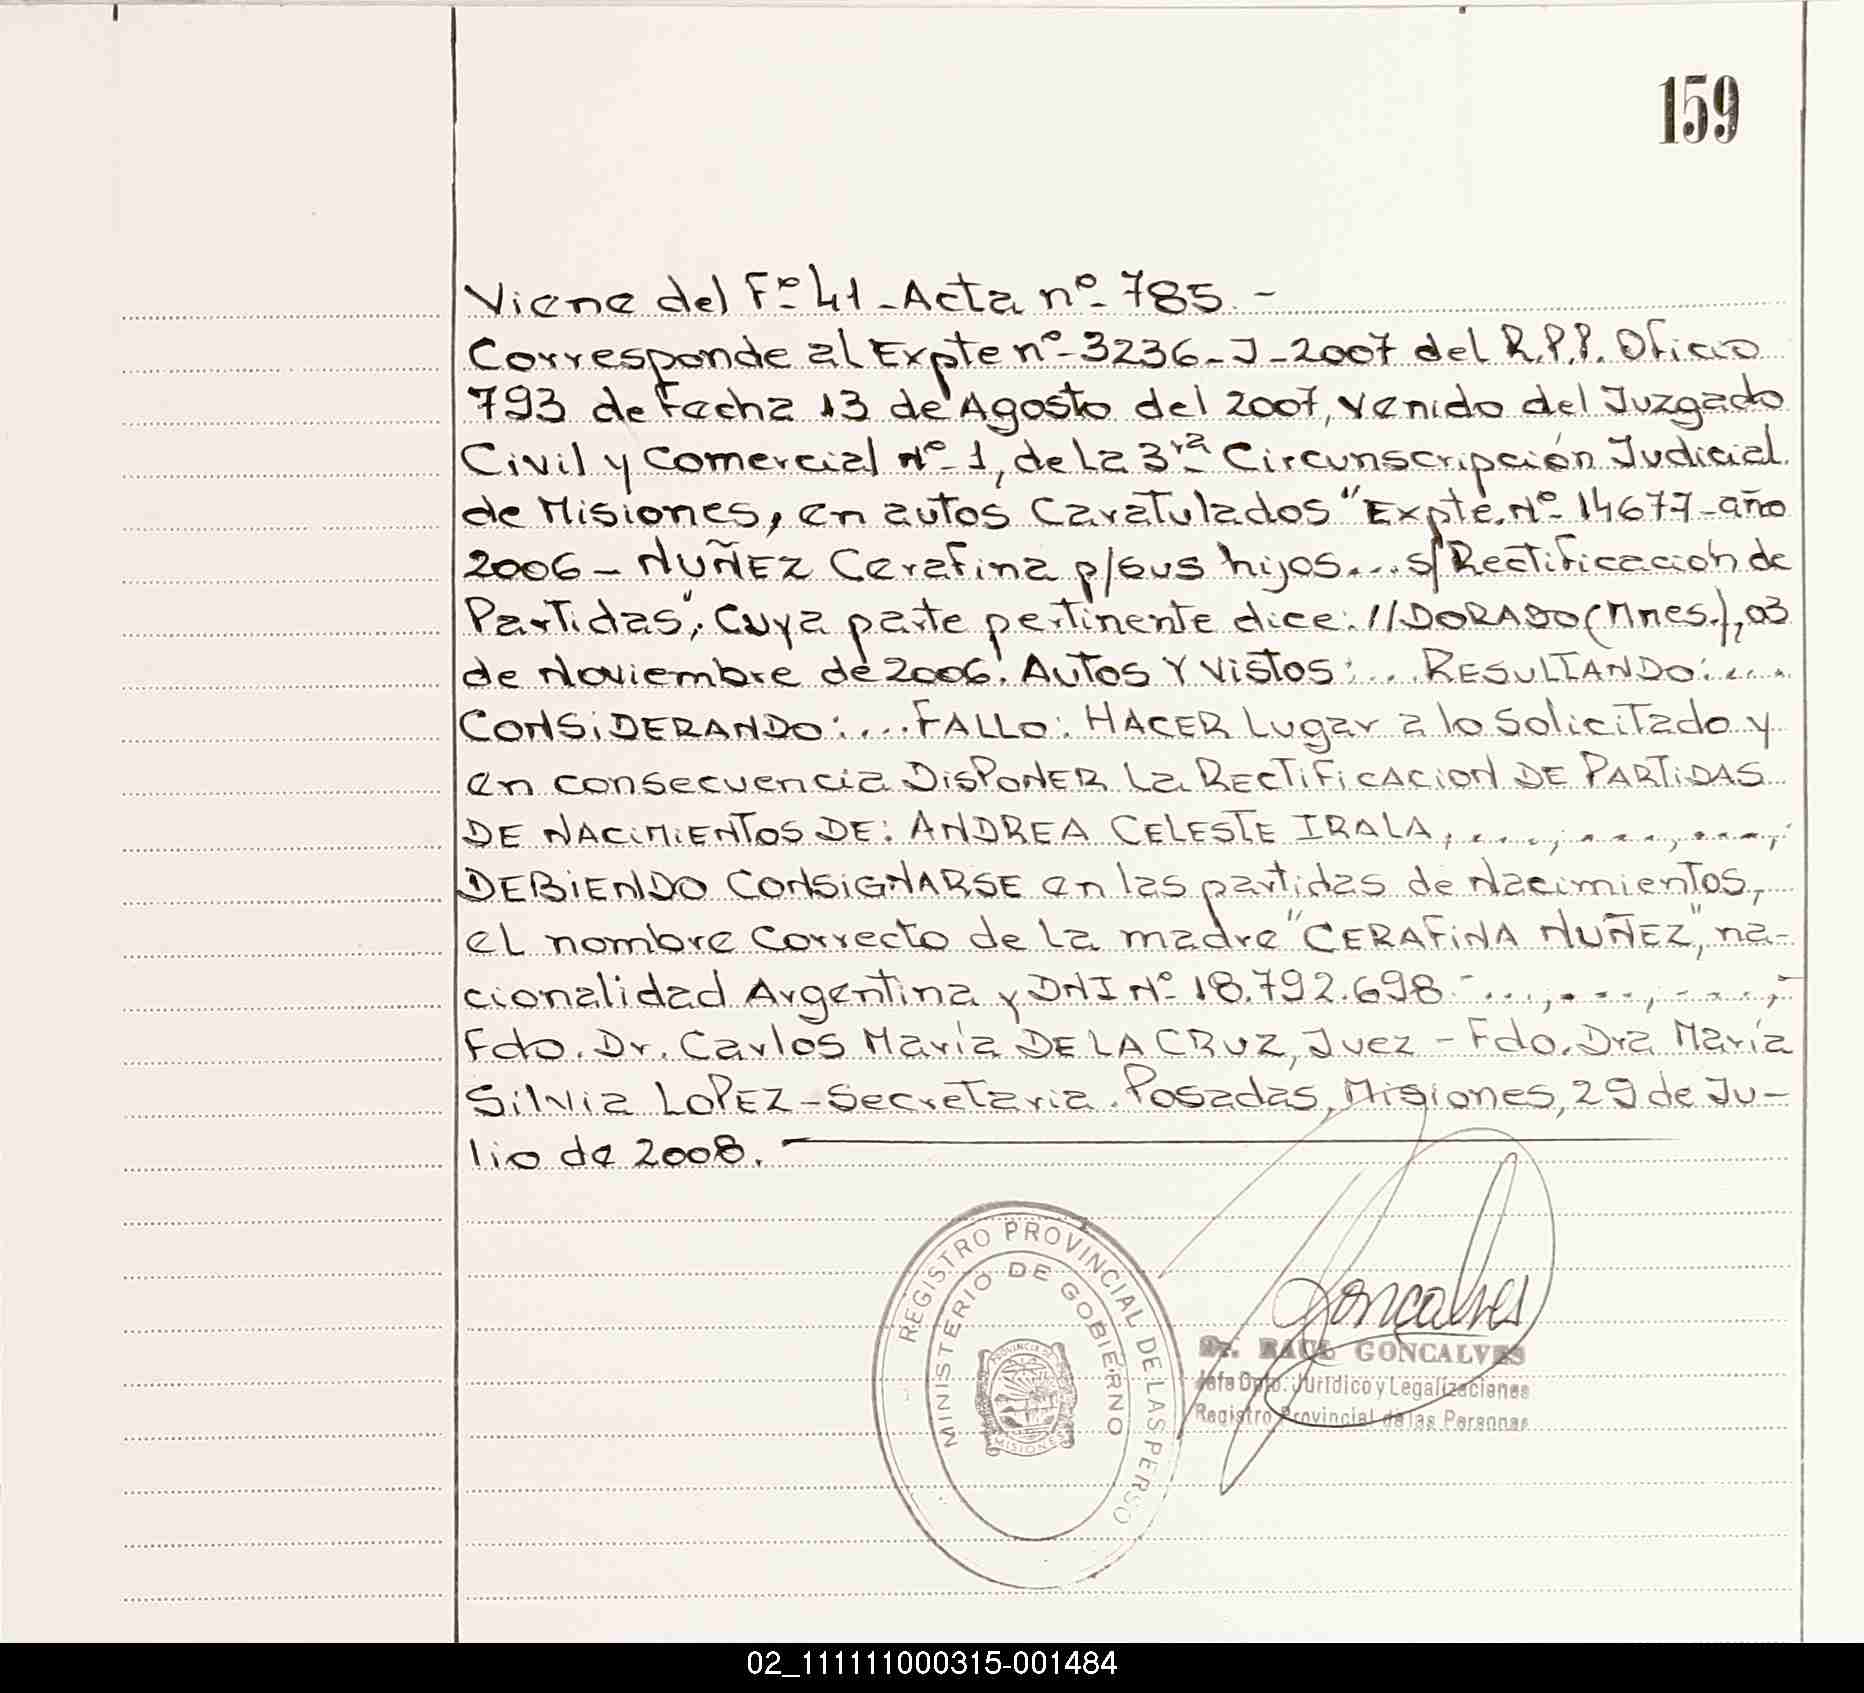 159
Viene del Fº 41 - Acta nº 785. -
Corresponde al Expte nº 3236-J-2007 del R.P.P. Oficio
793 de Fecha 13 de Agosto del 2007, venido del Juzgado
Civil y Comercial Nº 1, de la 3ra Circunscripción Judicial
de Misiones, en autos Caratulados "Expte. Nº 14677-año
2006 - NUÑEZ Cerafina p/sus hijos... s/Rectificación de
Partidas", Cuya parte pertinente dice: //DORADO (Mnes.), 03
de Noviembre de 2006. AUTOS Y VISTOS: ... RESULTANDO: ....
CONSIDERANDO: .... FALLO: HACER Lugar a lo Solicitado y
en consecuencia DISPONER La RECTIFICACION DE PARTIDAS
DE NACIMIENTOS DE: ANDREA CELESTE IRALA, ....; ...., ....,
DEBIENDO CONSIGNARSE en las partidas de Nacimientos,
el nombre Correcto de la madre "CERAFINA NUÑEZ", na-
cionalidad Argentina y DNI Nº 18.792.698 - ...., ...., ....,-
Fdo. Dr. Carlos María DE LA CRUZ, Juez - Fdo. Dra María
Silvia LOPEZ - Secretaria. Posadas, Misiones, 29 de Ju-
lio de 2008.
REGISTRO PROVINCIAL DE LAS PERSO
MINISTERIO DE GOBIERNO
PROVINCIA DE
MISIONES
Goncalves
Dr. RAUL GONCALVES
Jefe Dpto. Jurídico y Legalizaciones
Registro Provincial de las Personas
02_111111000315-001484